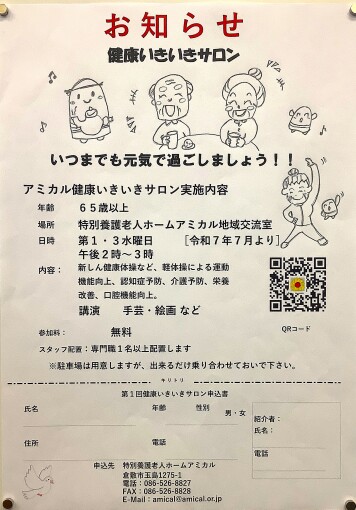 お知らせ
健康いきいきサロン
いつまでも元気で過ごしましょう！！
アミカル健康いきいきサロン実施内容
年齢　６５歳以上
場所　特別養護老人ホームアミカル地域交流室
日時　第１・３水曜日　［令和７年７月より］
午後２時～３時
内容：　新しん健康体操など、軽体操による運動
機能向上、認知症予防、介護予防、栄養
改善、口腔機能向上。
講演　手芸・絵画 など
QRコード
参加料：　無料
スタッフ配置：専門職１名以上配置します
※駐車場は用意しますが、出来るだけ乗り合わせておいで下さい。
キリトリ
第１回健康いきいきサロン申込書
氏名　年齢　性別
男・女
紹介者：
氏名：
住所　電話
電話
申込先　特別養護老人ホームアミカル
倉敷市玉島1275-1
電話：086-526-8827
FAX：086-526-8828
E-Mail：amical@amical.or.jp